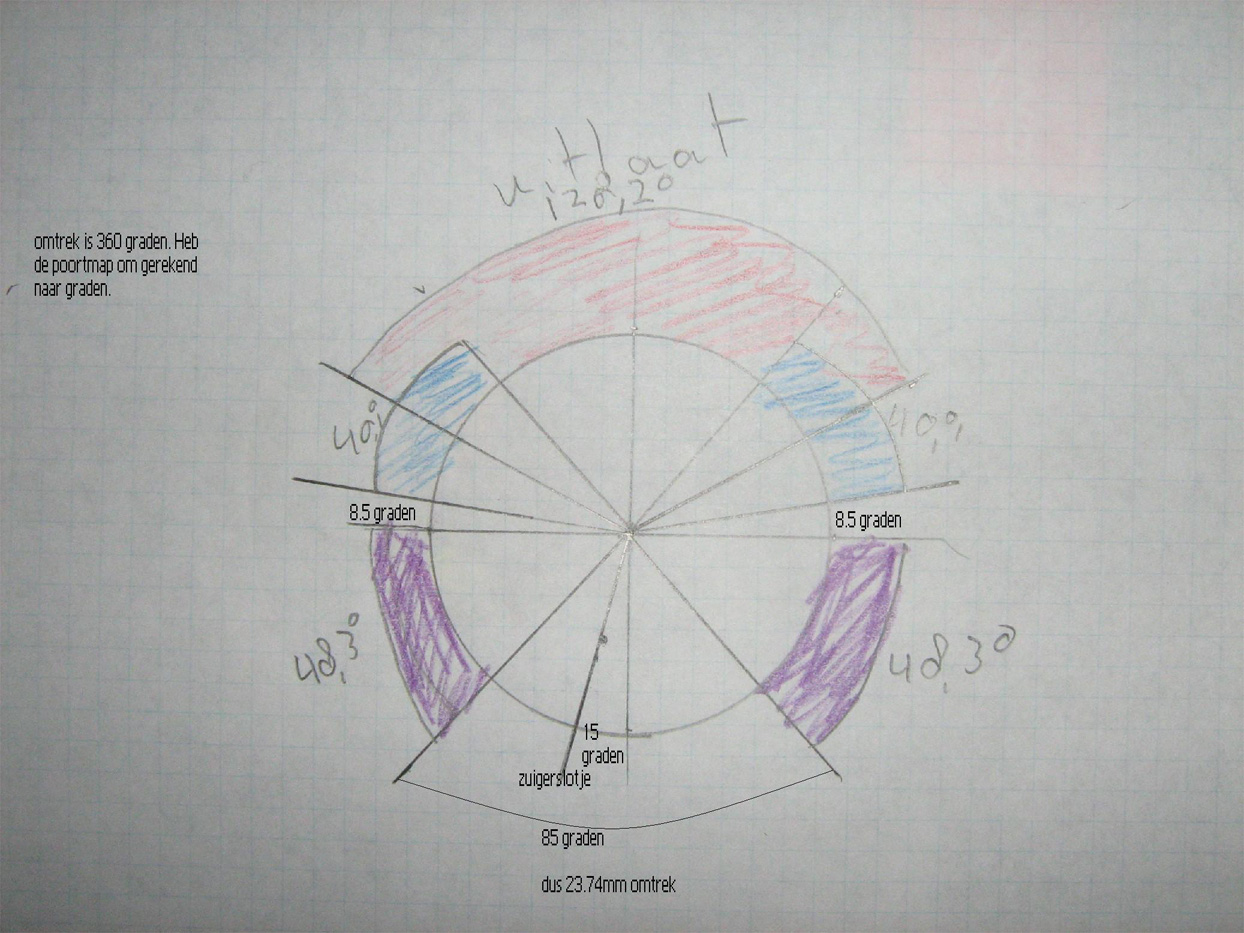 uitlaat
120,2°
omtrek is 360 graden. Heb
de poortmap om gerekend
naar graden.
8.5 graden
8.5 graden
48,3°
48,3°
15
graden
zuigerslotje
85 graden
dus 23.74mm omtrek